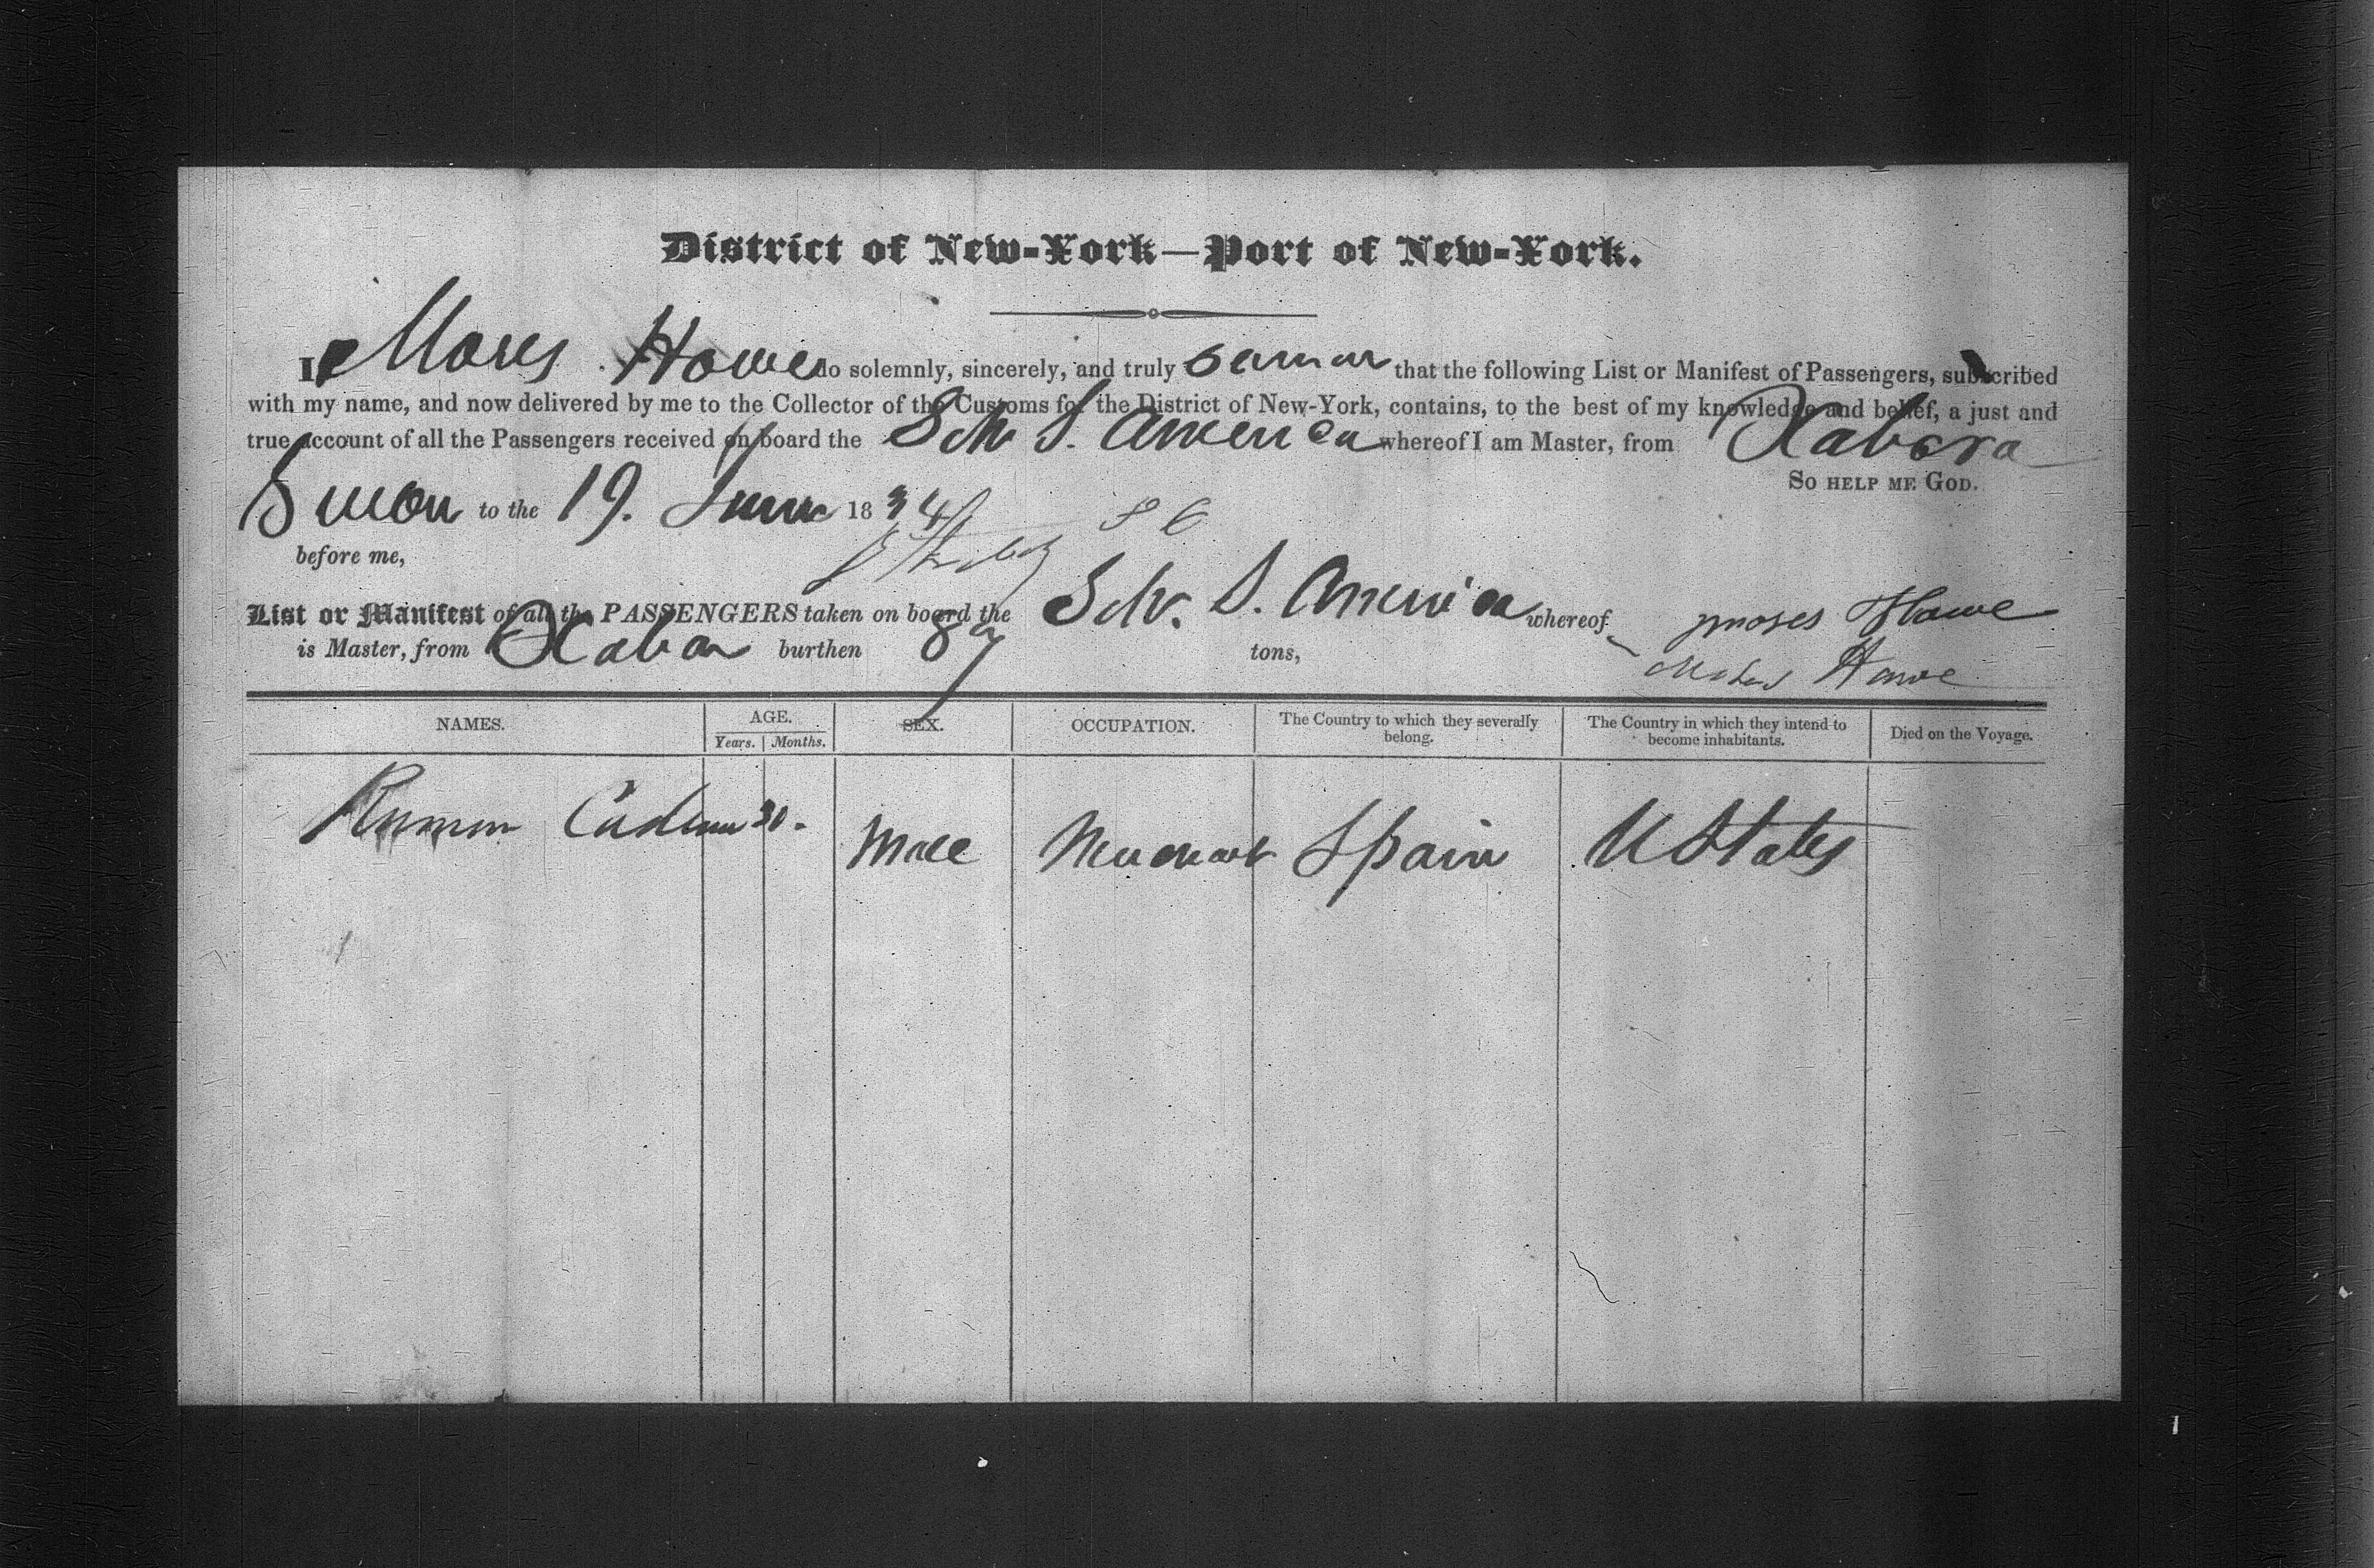 District of New-York—Port of New-York.
I, Moses Howe do solemnly, sincerely, and truly swear that the following List or Manifest of Passengers, subscribed
with my name, and now delivered by me to the Collector of the Customs for the District of New-York, contains, to the best of my knowledge and belief, a just and
true account of all the Passengers received on board the Schr S. America whereof I am Master, from
So help me God.
Sworn to the 19. June 1834
before me,
List or Manifest of all the PASSENGERS taken on board the Schr. S. America whereof Moses Howe
is Master, from burthen 87 tons, Moses Howe
NAMES. AGE. Years. Months. SEX. OCCUPATION. The Country to which they severally belong. The Country in which they intend to become inhabitants. Died on the Voyage.
30. Male Merchant Spain U States